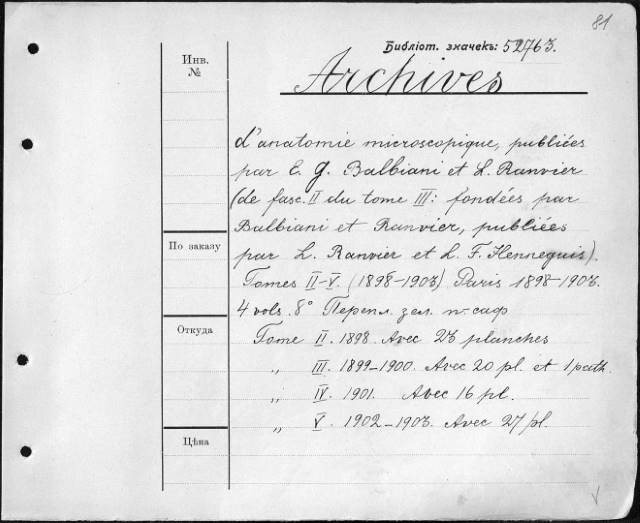 81
Библіот. значекъ: 52763.
Инв.
№
Archives
d'anatomie microscopique, publiées
par E. G. Balbiani et L. Ranvier
(de fasc. II du tome III: fondées par
Balbiani et Ranvier, publiées
По заказу
par L. Ranvier et L. F. Henneguis).
Tomes II–V. (1898–1903) Paris 1898–1903.
4 vols. 8° Перепл. зел. п. саф
Откуда
Tome II. 1898. Avec 23 planches
„ III. 1899–1900. Avec 20 pl. et 1 path.
„ IV. 1901. Avec 16 pl.
„ V. 1902–1903. Avec 27 pl.
Цѣна